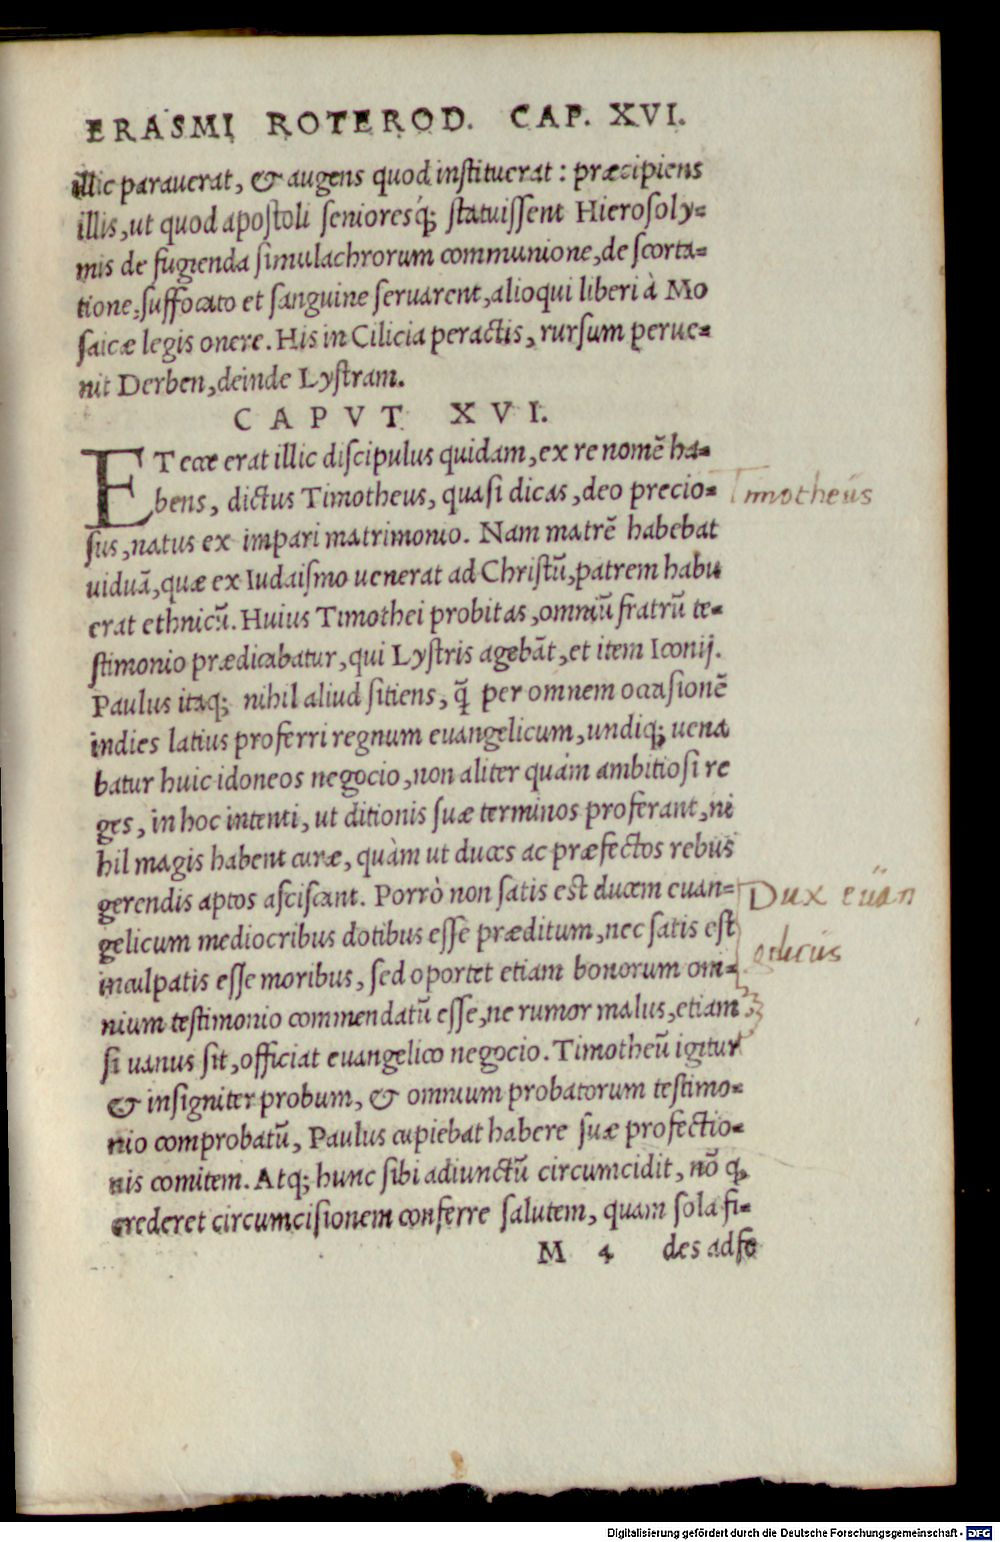 ERASMI ROTEROD. CAP. XVI.
illic parauerat, & augens quod instituerat: præcipiens
illis, ut quod apostoli senioresq́; statuissent Hierosoly=
mis de fugienda simulachrorum communione, de scorta=
tione, suffocato et sanguine seruarent, alioqui liberi à Mo
saicæ legis onere. His in Cilicia peractis, rursum perue=
nit Derben, deinde Lystram.
CAPVT XVI.
ET ecce erat illic discipulus quidam, ex re nomē ha=
bens, dictus Timotheus, quasi dicas, deo precio=
Timotheus
sus, natus ex impari matrimonio. Nam matrē habebat
uiduā, quæ ex Iudaismo uenerat ad Christū, patrem habu
erat ethnicū. Huius Timothei probitas, omniū fratrū te=
stimonio prædicabatur, qui Lystris agebāt, et item Iconij.
Paulus itaq; nihil aliud sitiens, q̄ per omnem occasionē
indies latius proferri regnum euangelicum, undiq; uena
batur huic idoneos negocio, non aliter quàm ambitiosi re
ges, in hoc intenti, ut ditionis suæ terminos proferant, ni
hil magis habent curæ, quàm ut duces ac præfectos rebus
gerendis aptos asciscant. Porrò non satis est ducem euan=
Dux euan
gelicum mediocribus dotibus esse præditum, nec satis est
gelicus
inculpatis esse moribus, sed oportet etiam bonorum om=
nium testimonio commendatū esse, ne rumor malus, etiam
si uanus sit, officiat euangelico negocio. Timotheū igitur
& insigniter probum, & omnium probatorum testimo=
nio comprobatū, Paulus cupiebat habere suæ profectio=
nis comitem. Atq; hunc sibi adiunctū circumcidit, nō q̓
crederet circumcisionem conferre salutem, quam sola fi=
M 4 des adfe
Digitalisierung gefördert durch die Deutsche Forschungsgemeinschaft - DFG